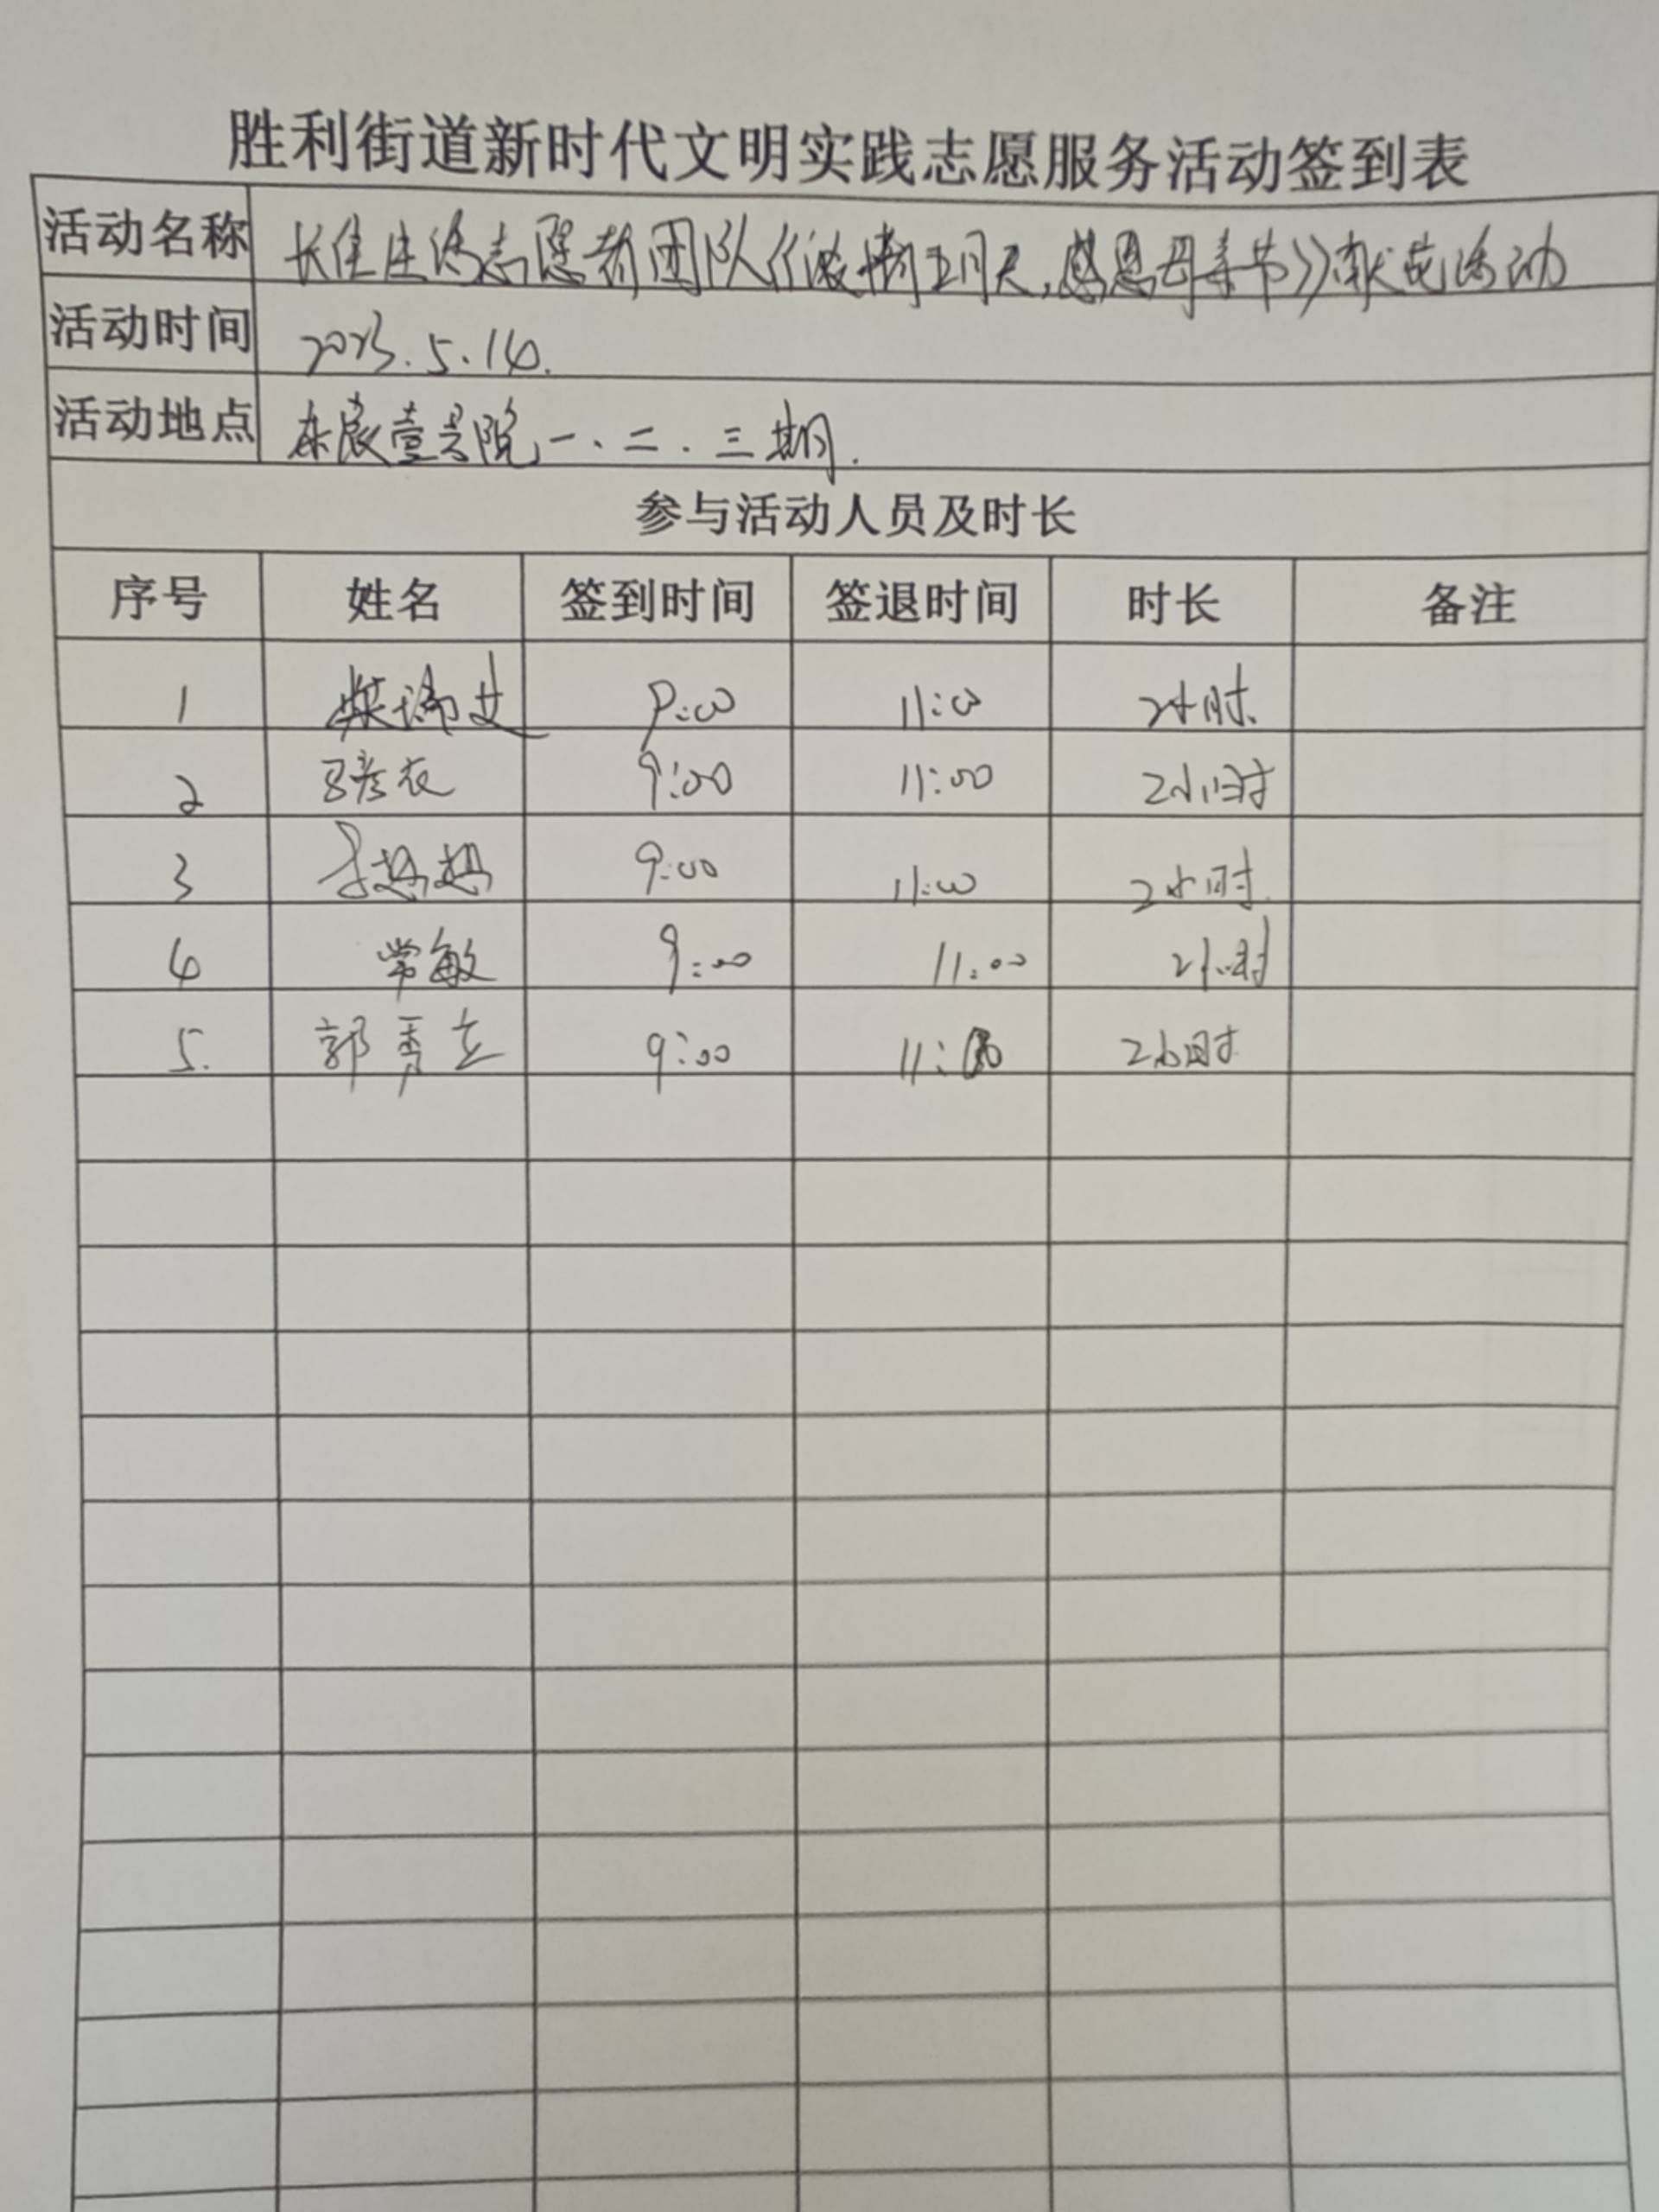 胜利街道新时代文明实践志愿服务活动签到表
活动名称 长佳生活志愿者团队《浓情五月天,感恩母亲节》献花活动
活动时间 2023.5.14.
活动地点 东晟壹号院一、二、三期.
参与活动人员及时长
序号 姓名 签到时间 签退时间 时长 备注
1 9:00 11:00 2小时.
2 9:00 11:00 2小时
3 9:00 11:00 2小时.
4 常敏 9:00 11:00 2小时
5. 郭秀立 9:00 11:00 2小时